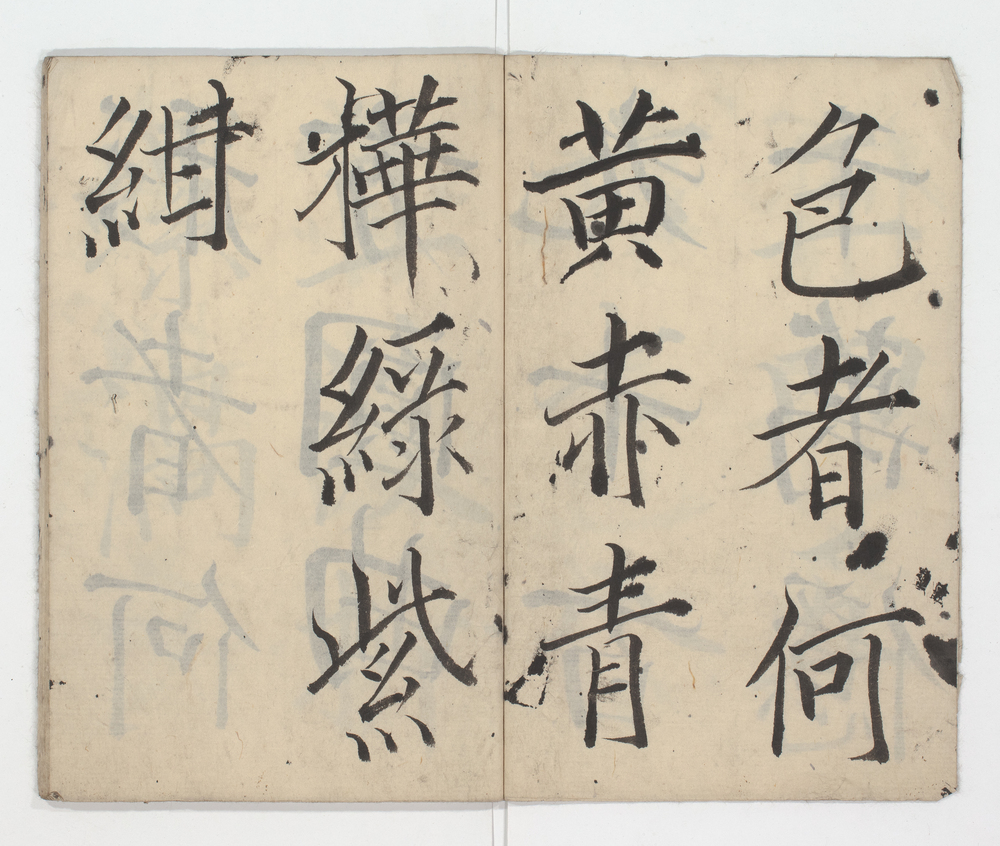 色者何
黄赤青
樺緑紫
紺